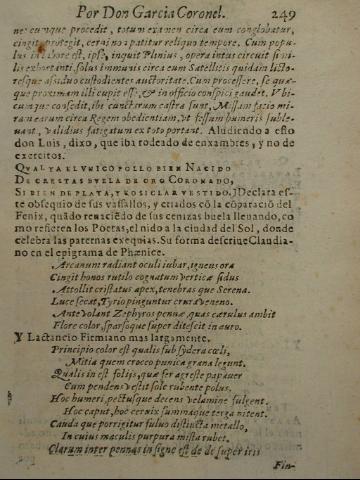 Por Don Garcia Coronel. 249
necunque procedit, totum examen circa eum conglobatur,
cingit, protegit, cerni non patitur reliquo tempore. Cum popu-
lus in labore est, ipse, inquit Plinius, opera intus circuit simi-
lis exhortanti, solus immunis circa eum Satellites quidam licto-
resque assiduo custodientes auctoritate. Cum processere, se quæ-
que proximam illi cupit esse, & in officio conspici gaudet. Vbi-
cunque consedit, ibi cunctarum castra sunt, Missam facio mi-
ram earum circa Regem obedientiam, vt fessum humeris suble-
uant, validius fatigatum ex toto portant. Aludiendo a esto
don Luis, dixo, que iba rodeado de enxambres, y no de
exercitos.
QVAL YA EL VNICO POLLO BIEN NACIDO
DE CRESTAS BVELA DE ORO CORONADO,
SI BIEN DE PLATA, Y ROSICLER VESTIDO.] Declara es-
te obsequio de sus vassallos, y criados cõ la cõparaciõ del
Fenix, quãdo renaciẽdo de sus cenizas buela lleuando, co-
mo refieren los Poetas, el nido a la ciudad del Sol, donde
celebra las paternas exequias. Su forma descriue Claudia-
no en el epigrama de Phænice.
Arcanum radiant oculi iubar, igneus ora
Cingit honos rutilo cognatum vertice sidus
Attollit cristatus apex, tenebras que Serena.
Luce secat, Tyrio pinguntur crura veneno.
Ante volant Zephyros pennæ, quas cærulus ambit
Flore color, sparsoque super ditescit in auro.
Y Lactancio Firmiano mas largamente.
Principio color est qualis sub sydera cœli,
Mitia quem crocco punica grana legunt.
Qualis in est folijs, quæ fer agreste papauer
Cum pendens vestit sole rubente polus.
Hoc humeri, pectusque decens velamine fulgent.
Hoc caput, hoc ceruix summaque terga nitent.
Cauda que porrigitur fuluo distincta metallo,
In cuius maculis purpura mista rubet.
Clarum inter pennas insigne est de super iris
Fin-